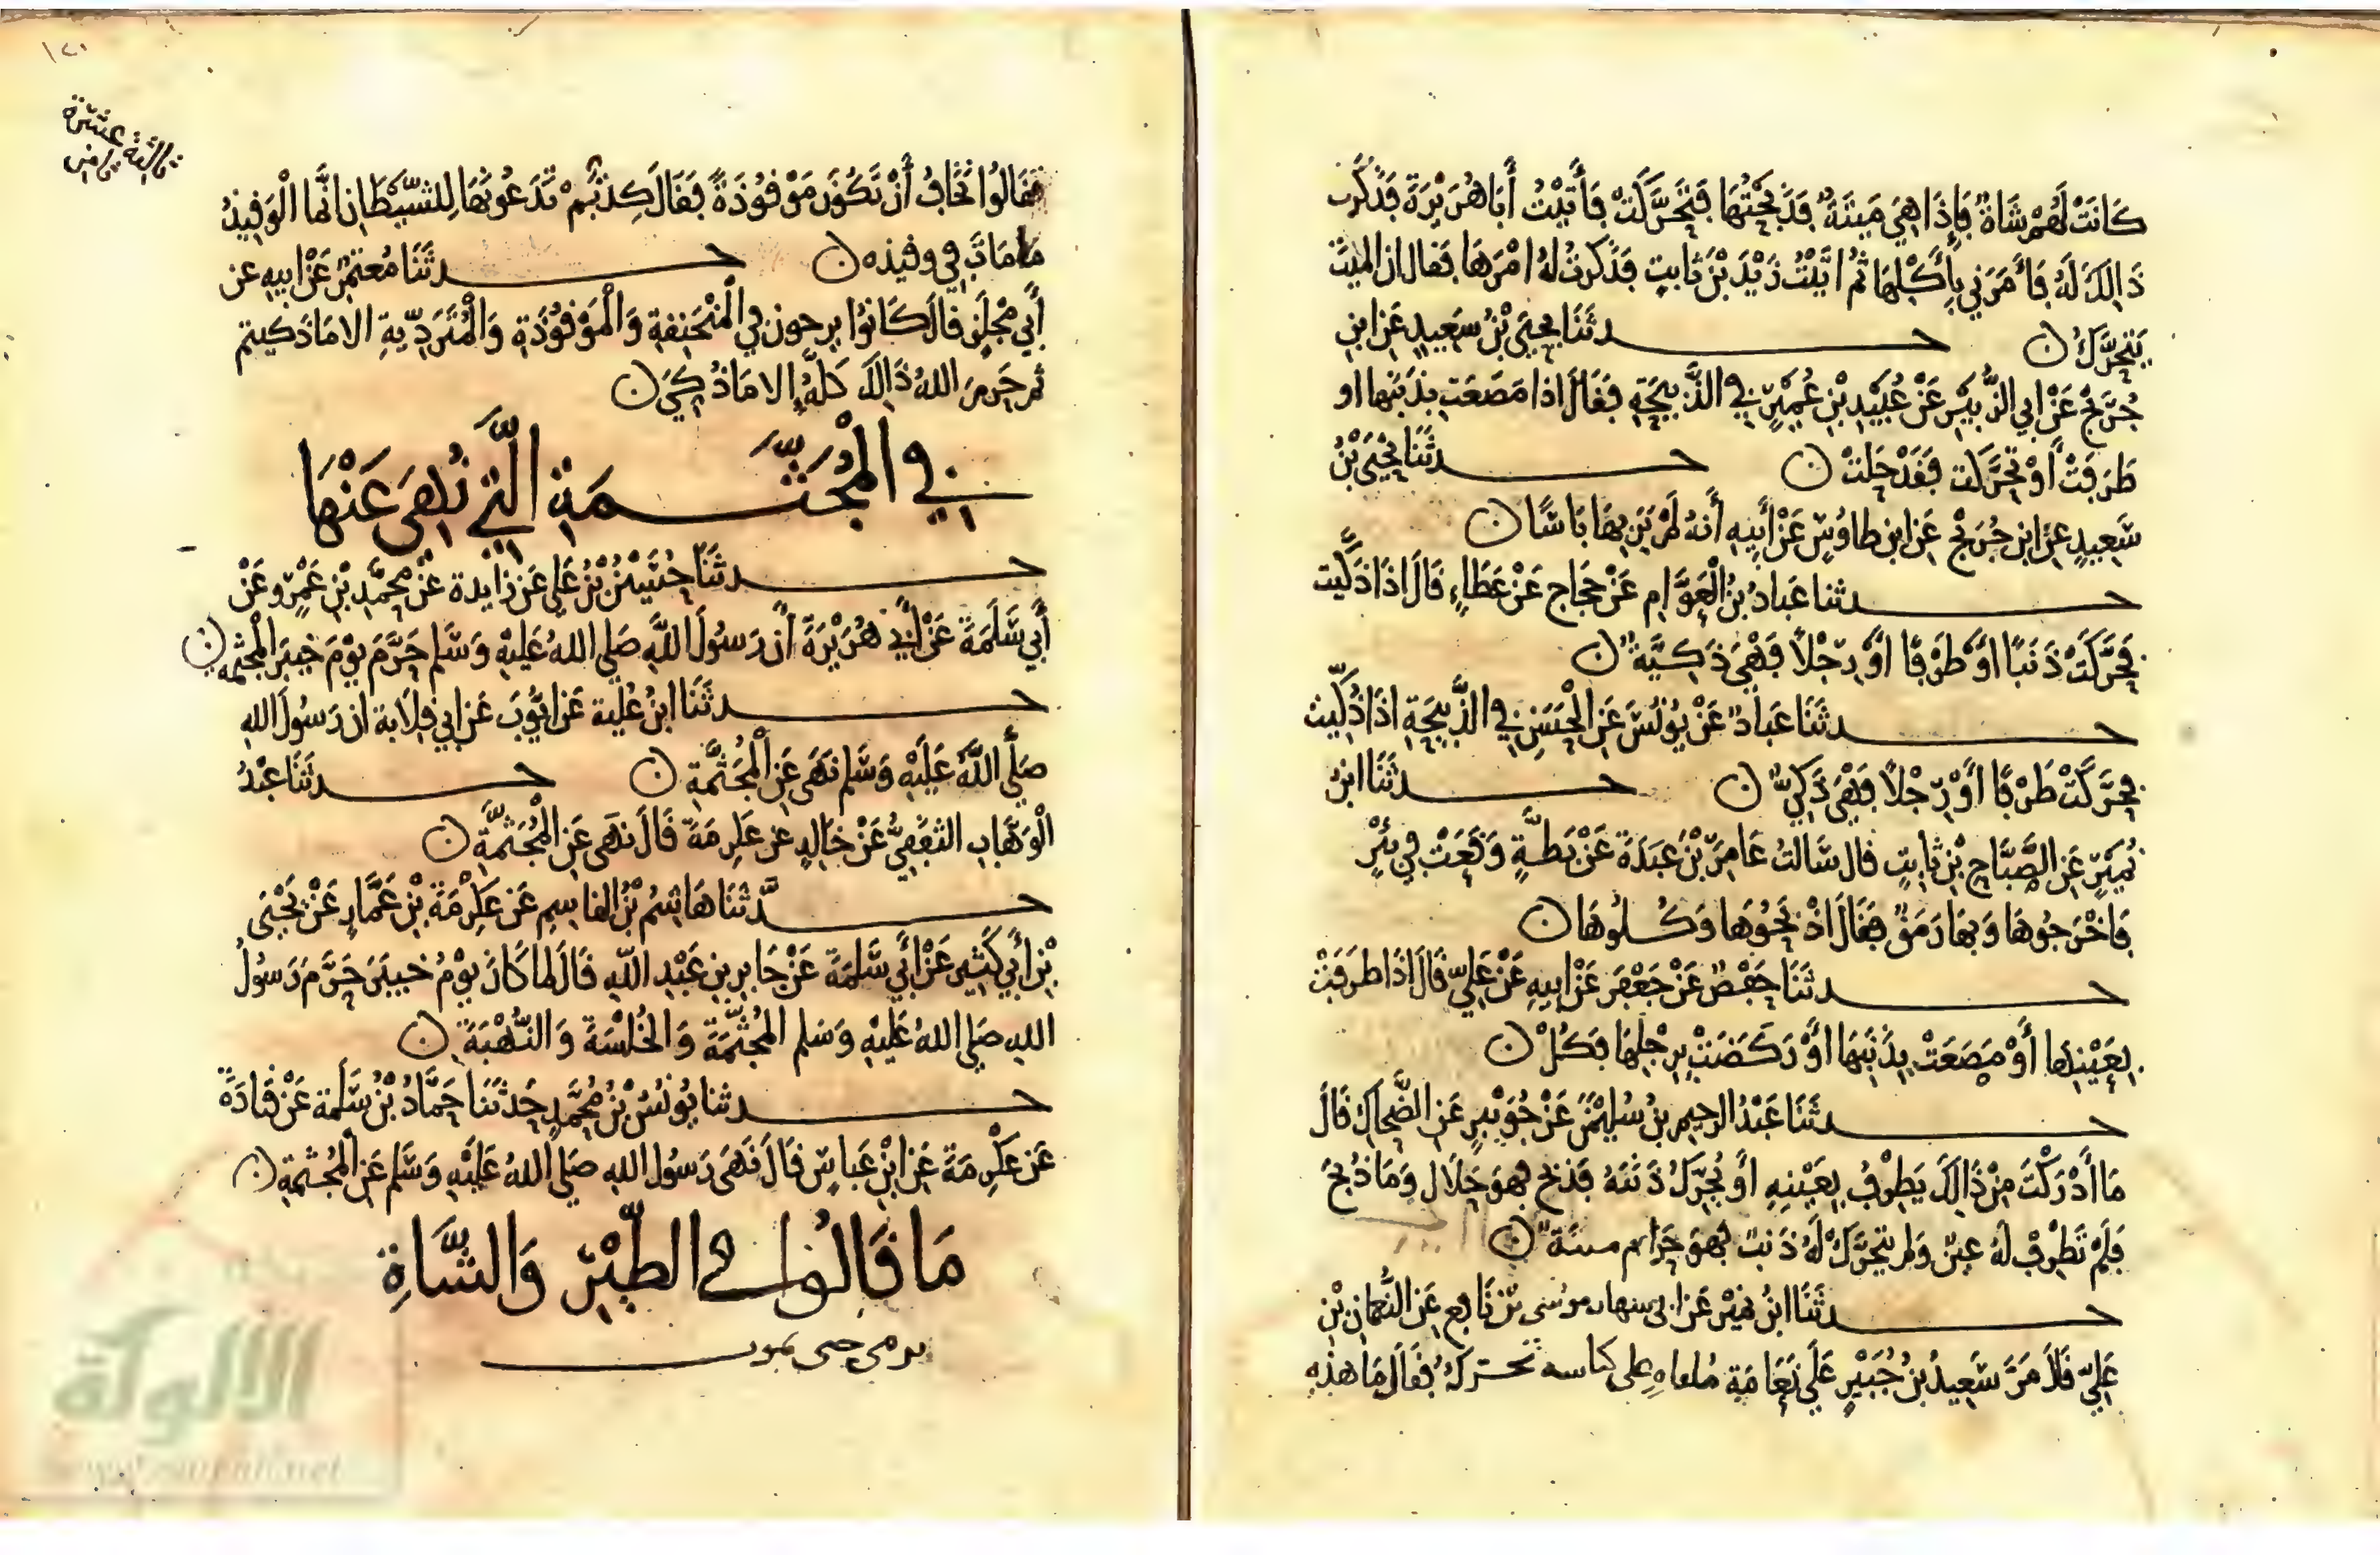 كَانَتْ لَهُمْ شَاةٌ فَإِذَا هِيَ مَيتَةٌ فَذَبَحْتُهَا فَتَحَرَّكَتْ فَأَتَيْتُ أَبَا هُرَيْرَةَ فَذَكَرت
ذَالِكَ لَهُ فَأَمَرَنِي بِأَكْلِهَا ثُمَّ اتَيْتُ زَيْدَ بْنَ ثَابِتٍ فَذَكَرتُ لَهُ امْرَهَا فَقال ان الميتَ
يَتَحَرَّكُ ن حدثَنَا يحيَى بْنُ سَعِيدٍ عَن ابنِ
جُرَيجٍ عَنْ ابي الزُّبيْرِ عَنْ عُبَيْدِ بْنِ عُمَيْرٍ فِي الذَّبِيحَةِ فَقَالَ اذا مَصَعَت بِذَنَبِهَا او
طَرَفَتْ أَوْ تَحَرَّكَت فَقَدْ حَلتْ ن حدثَنَا يَحْيَى بْنُ
سَعِيدٍ عَن ابنِ جُرَيجٍ عَن ابن طاوُسٍ عَنْ أَبِيهِ أَنهُ لَمْ يَرَ بِهَا بَاسًا ن
حدثنا عَبادُ بنُ الْعَوَّامِ عَنْ حَجَاجٍ عَنْ عَطَاءٍ قَالَ اذَا ذُكِّيَت
فَحَرَّكَتْ ذَنَبًا اوْ طَرْفًا اوْ رِجْلاً فَهْيَ ذَكِيَّةٌ ن
حدثَنَا عَبادٌ عَنْ يُونُسَ عَن الْحَسَنِ فِي الذَّبِيحَةِ اذَا ذُكِّيَت
فحَرَّكَتْ طَرْفًا أَوْ رِجْلاً فَهْيَ ذَكِيٌّ ن حدثَنَا ابنُ
نُمَيْرٍ عَن الصَّبَّاحِ بْنِ ثَابِتٍ قال سَالتُ عَامِرَ بْنَ عَبَدَةَ عَنْ بَطَّةٍ وَقَعَتْ فِي بِئْرٍ
فَاخْرَجُوهَا وَبِهَا رَمَقٌ فَقَالَ اذْبَحُوهَا وَكُلُوهَا ن
حدثَنَا حَفْصٌ عَنْ جَعْفَرٍ عَنْ ابِيهِ عَنْ عَلِيٍّ قَالَ اذَا طَرَفَتْ
بِعَيْنِهَا أَوْ مَصَعَتْ بِذَنَبِهَا اوْ رَكَضَتْ بِرِجْلِهَا فَكُلْ ن
حدثَنَا عَبْدُ الرحِيم بنُ سُليْمنَ عَنْ جُوَيْبِرٍ عَنِ الضَّحاكِ قَالَ
مَا أَدْرَكْتَ مِنْ ذَالِكَ يَطرِفُ بِعَيْنِهِ اوْ يُحَرِّكُ ذَنَبَهُ فَذبحَ فَهوَ حَلاَل وَمَا ذُبِحَ
فَلَمْ تَطْرِفْ لَهُ عينٌ وَلم يتحَرَّكْ لَهُ ذَنبٌ فهوَ حَرَام ميتَةٌ ن
حدثَنَا ابنُ نميْرٍ عَن ابي سهاب موسى بْن نَافِع عَن النُّعمانِ بْنِ
عَلِيٍّ قَالَ مَرَّ سَعِيدُ بنُ جُبَيْرٍ عَلَى نَعَامَةٍ ملقاهِ على كناسه تحركُ فقَالَ مَا هَذِهِ
ثالثة عشرة
فَقَالُوا نَخَافُ أَنْ تَكُونَ مَوْقُوذَةً فَقَالَ كِدْتُمْ تَدَعُونَهَا لِلشَّيْطَانِ انَّمَا الْوَقِيذُ
مَا مَاتَ فِي وقيذه ن حدثَنَا مُعْتَمِرٌ عَنْ ابِيهِ عن
أَبِي مِجْلَزٍ قَالَ كَانُوا يرحون فِي الْمُنْخَنِقةِ وَالْمَوْقُوذَةِ وَالْمُتَرَدِّيةِ الا مَا ذَكيتم
ثم حَرمَ اللهُ ذَالِكَ كلَّهُ إلا مَا ذُكِيَ ن
فِي الْمُجَثَّمَةِ الَّتِي نُهِيَ عَنْهَا
حدثَنَا حُسَيْنُ بْنُ عَلِي عَن زَايدة عَنْ مُحَمَّدِ بْنِ عَمْرٍو عَنْ
أَبِي سَلَمَةَ عَنْ أَبِي هُرَيْرَةَ أَن رَسُولَ اللَّهِ صَلى اللهُ عَليْهِ وَسَلم حَرَّمَ يوْمَ خيبَرَ المُجثمَةَ ن
حدثَنَا ابنُ عُليةَ عَن ايُّوبَ عَن ابي قِلاَبة ان رَسُولَ اللهِ
صَلَّى اللَّهُ عَلَيْهِ وَسَلم نَهَى عَنِ الْمُجَثَّمَةِ ن حدثَنَا عَبْدُ
الْوَهَّابِ الثقَفِيُّ عَنْ خَالِدٍ عن عِكرِمَةَ قَالَ نهَى عَنِ الْمُجَثَّمَةِ ن
حدَّثنَا هَاشِمُ بْنُ القاسِمِ عَن عِكْرِمَةَ بْنِ عَمَّارٍ عَنْ يَحْيَى
بْنِ أَبِي كَثِيرٍ عَنْ أَبِي سَلَمَةَ عَنْ جَابِرِ بنِ عَبْدِ اللَّهِ قَالَ لما كَانَ يوْمُ خيبَرَ حَرَّمَ رَسُولُ
اللهِ صَلى اللهُ عَليْهِ وَسَلم المُجثَّمَةَ وَالْخُلْسَةَ وَالنُّهْبَةَ ن
حدثنا يُونُسُ بْنُ مُحَمَّدٍ حَدثَنَا حَمَّادُ بْنُ سَلَمَة عَنْ قَتَادَةَ
عَن عِكْرِمَةَ عَن ابْنِ عَباسٍ قَالَ نَهَى رَسُولُ اللهِ صَلى اللهُ عَلَيْهِ وَسَلم عَنِ الْمُجثَمَةِ ن
مَا قَالُوا في الطَّيْرِ وَالشَّاةِ
يرمى حتى يموت
الألوكة